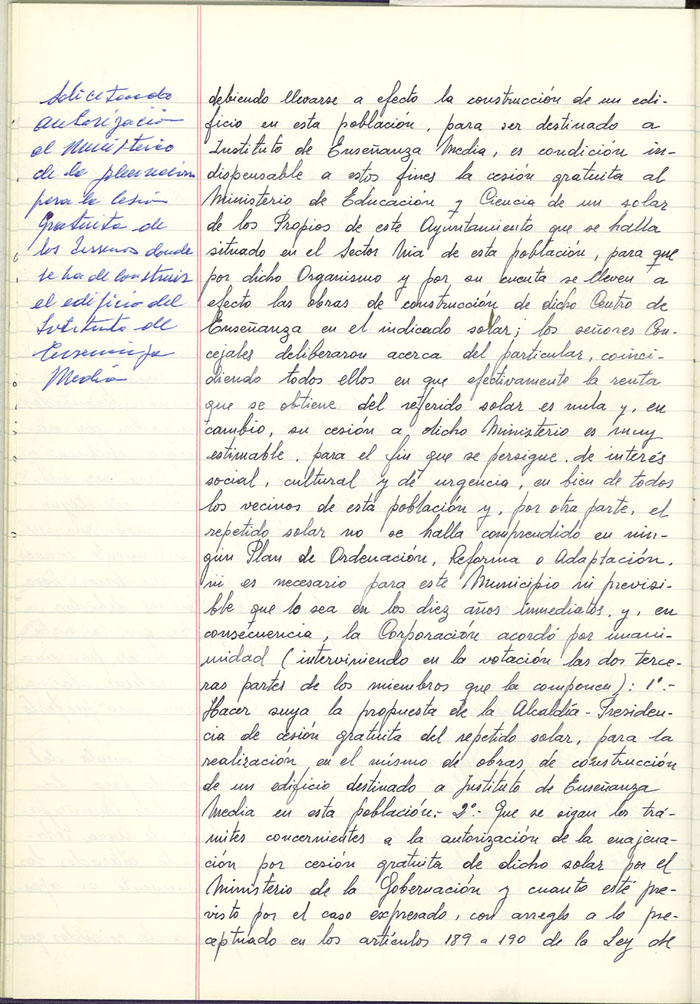 Solicitando
autorización
al Ministerio
de la
para la cesión
gratuita de
los terrenos donde
se ha de construir
el edificio del
Instituto de
Enseñanza
Media
debiendo llevarse a efecto la construcción de un edi-
ficio en esta población, para ser destinado a
Instituto de Enseñanza Media, es condición in-
dispensable a estos fines la cesión gratuita al
Ministerio de Educación y Ciencia de un solar
de los Propios de este Ayuntamiento que se halla
situado en el Sector Vía de esta población, para que
por dicho Organismo y por su cuenta se lleven a
efecto las obras de construcción de dicho Centro de
Enseñanza en el indicado solar; los señores Con-
cejales deliberaron acerca del particular, coinci-
diendo todos ellos en que efectivamente la renta
que se obtiene del referido solar es nula y, en
cambio, su cesión a dicho Ministerio es muy
estimable, para el fin que se persigue, de interés
social, cultural y de urgencia, en bien de todos
los vecinos de esta población y, por otra parte, el
repetido solar no se halla comprendido en nin-
gún Plan de Ordenación, Reforma o Adaptación,
ni es necesario para este Municipio ni previsi-
ble que lo sea en los diez años inmediatos, y, en
consecuencia, la Corporación acordó por unani-
midad (interviniendo en la votación las dos terce-
ras partes de los miembros que la componen): 1º.-
Hacer suya la propuesta de la Alcaldía-Presiden-
cia de cesión gratuita del repetido solar, para la
realización, en el mismo de obras de construcción
de un edificio destinado a Instituto de Enseñanza
Media en esta población.- 2º.- Que se sigan los trá-
mites concernientes a la autorización de la enajena-
ción por cesión gratuita de dicho solar por el
Ministerio de la Gobernación y cuanto esté pre-
visto por el caso expresado, con arreglo a lo pre-
ceptuado en los artículos 189 a 190 de la Ley de